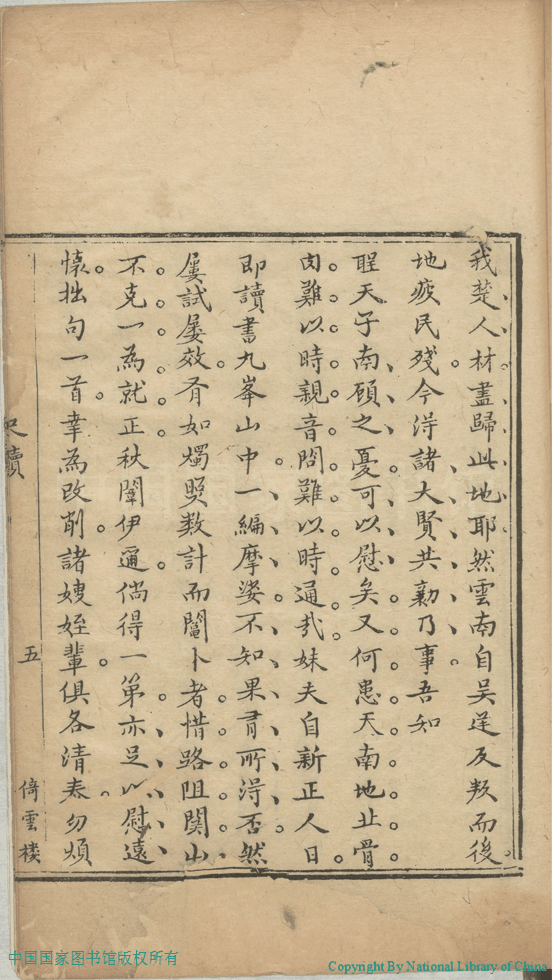 我楚人材盡歸此地耶然雲南自吳逆反叛而後
地疲民殘今得諸大賢共勷乃事吾知
聖天子南顧之憂可以慰矣又何患天南地北骨
肉難以時親音問難以時通哉妹夫自新正人日
即讀書九峯山中一編摩娑不知果有所得否然
屢試屢效有如燭照数計而闈卜者惜路阻関山
不克一為就正秋闈伊邇倘得一第亦足以慰遠
懷拙句一首幸為改削諸嫂姪輩俱各清泰勿煩
尺牘
五
倚雲樓
中国国家图书馆版权所有
Copyright By National Library of China